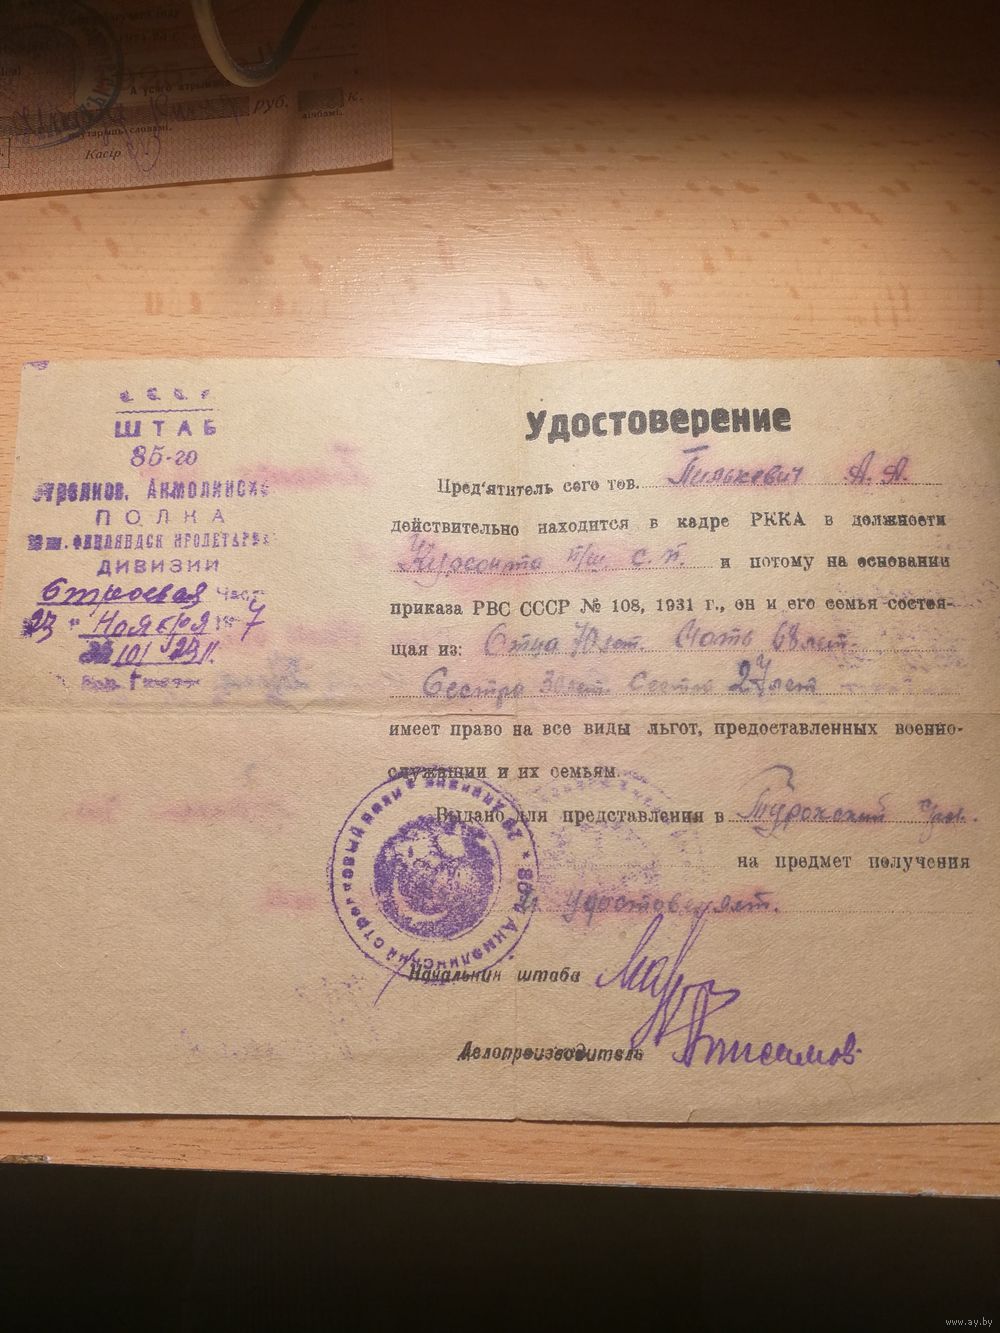 А усяго атрымана
руб. к.
лічбамі.
Касір
С. С. С. Р
ШТАБ
85-го
Стрелков. Акмолинск
ПОЛКА
ДИВИЗИИ
Строевая Часть
23 " Ноября 7
Удостоверение
Пред'ятитель сего тов. Пилькевич А. А.
действительно находится в кадре РККА в должности
Курсанта с. п. и потому на основании
приказа РВС СССР № 108, 1931 г., он и его семья состоя-
щая из: Отца 70 лет. Мать 68 лет.
Сестра 30 лет. Сестра 27 лет
имеет право на все виды льгот, предоставленных военно-
служащии и их семьям.
Выдано для представления в
на предмет получения
удостоверят.
Начальник штаба
Делопроизводитель Анисимов
www.ay.by